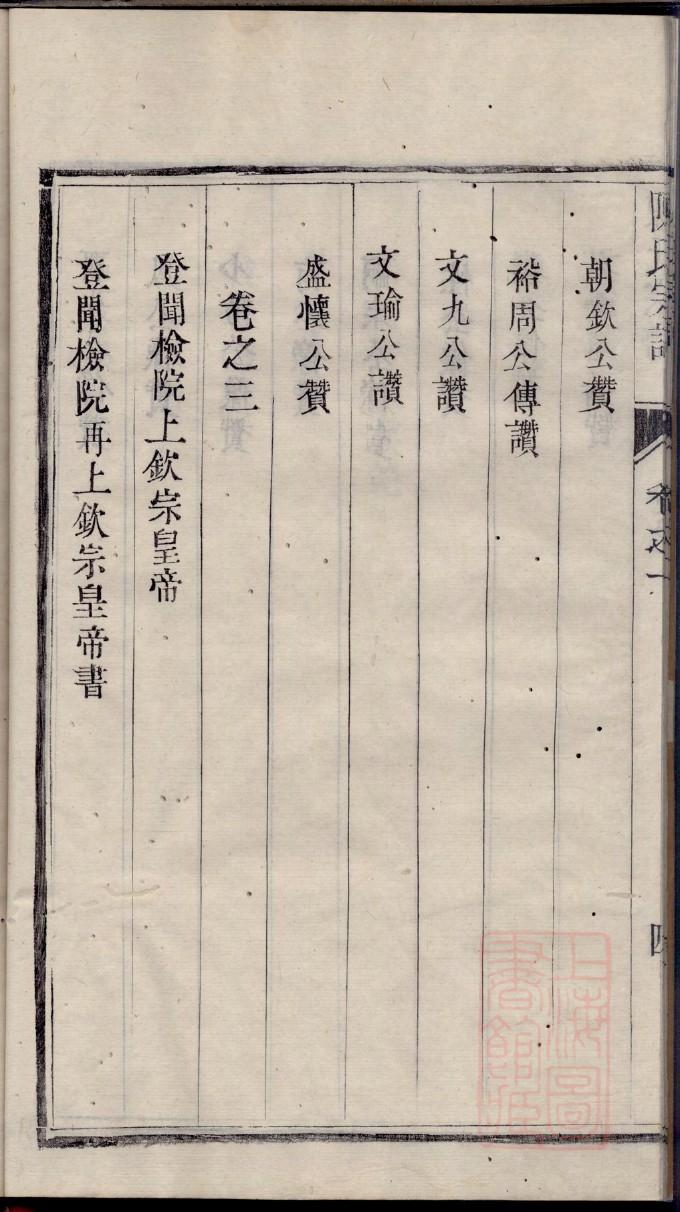 陳氏宗譜
卷之一
四
朝欽公贊
裕周公傳讚
文九公讚
文瑜公讚
盛懷公贊
卷之三
登聞檢院上欽宗皇帝
登聞檢院再上欽宗皇帝書
上海圖書館藏